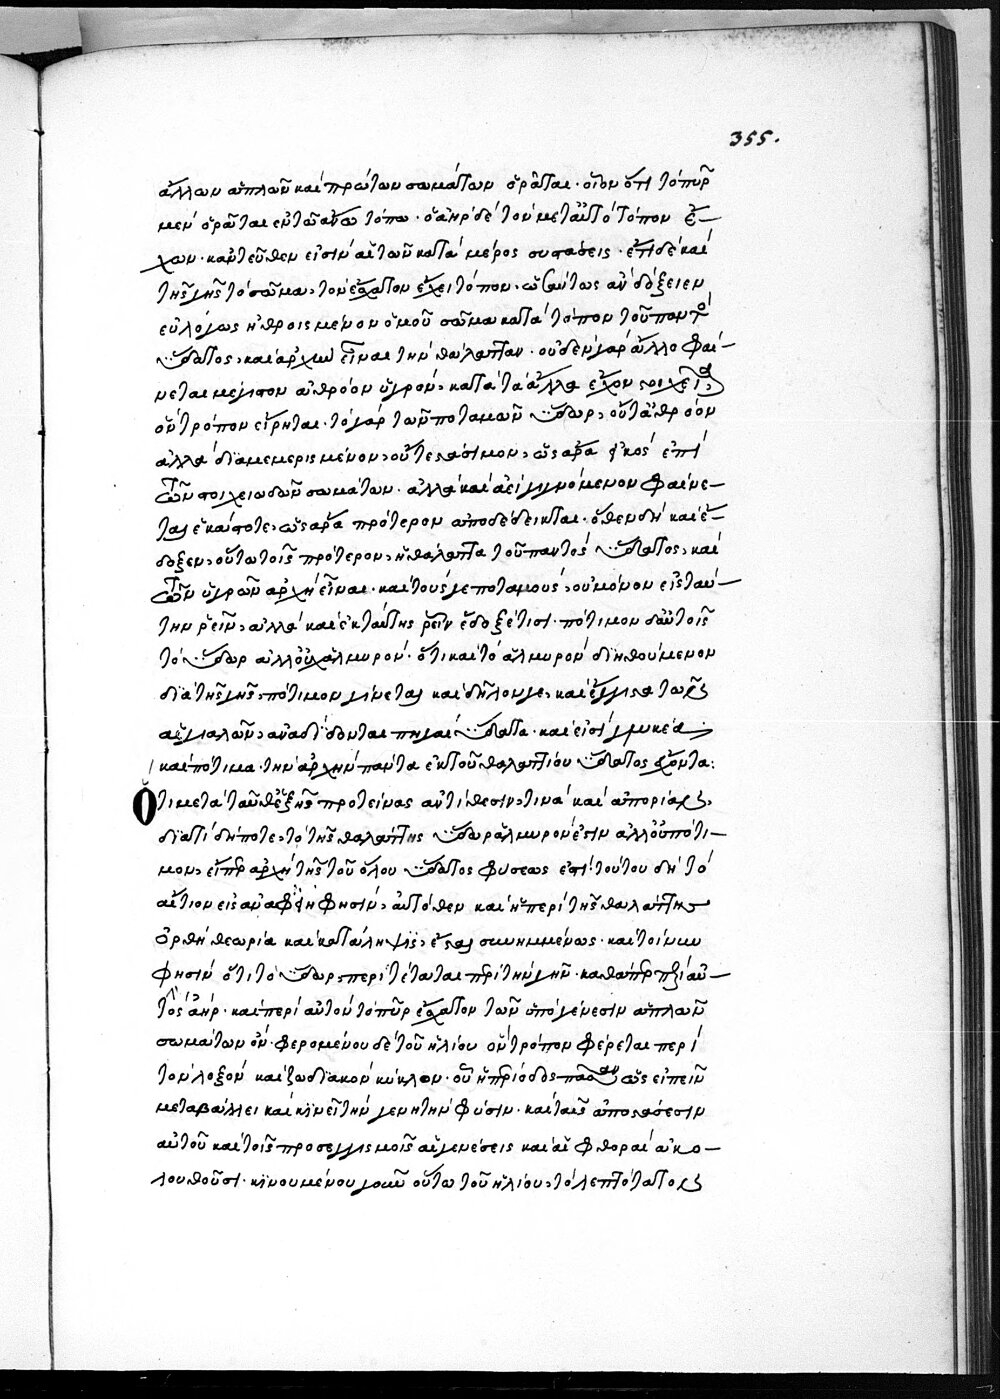 355.
ἄλλων ἁπλῶν καὶ πρώτων σωμάτων ὁρᾶται· οἷον ὅτι τὸ πῦρ
μὲν ὁρᾶται ἐν τῷ ἄνω τόπῳ· ὁ ἀὴρ δὲ τὸν μετ' αὐτὸ τόπον ἔ-
χων· κἀντεῦθεν εἰσὶν αἱ τῶν κατὰ μέρος συστάσεις· ἐπεὶ δὲ καὶ
τῆς γῆς τὸ σῶμα, τὸν ἔσχατον ἔχει τόπον, ὡσαύτως ἂν δόξειεν
εὐλόγως ἠθροισμένον ὁμοῦ σῶμα κατὰ τόπον τοῦ παντὸς
ὕδατος, καὶ ἀρχὴν εἶναι τὴν θάλατταν· οὐδὲν γὰρ ἄλλο φαί-
νεται μέγιστον ἀθρόον ὑγρόν, κατὰ τὰ ἄλλα ἔχον στοιχεῖα,
ὃν τρόπον εἴρηται· τὸ γὰρ τῶν ποταμῶν ὕδωρ, οὔτ' ἀθρόον
ἀλλὰ διαμεμερισμένον, οὔτε στάσιμον, ὡς ἄρα εἰκὸς ἐπὶ
τῶν στοιχειωδῶν σωμάτων· ἀλλὰ καὶ ἀεὶ γιγνόμενον φαίνε-
ται ἑκάστοτε, ὡς ἄρα πρότερον ἀποδέδεικται· ὅθεν δὴ καὶ ἔ-
δοξεν, οὕτω τοῖς πρότερον, ἡ θάλαττα τοῦ παντὸς ὕδατος, καὶ
τῶν ὑγρῶν ἀρχὴ εἶναι· καὶ τούς γε ποταμούς, οὐ μόνον εἰς ταύ-
την ῥεῖν, ἀλλὰ καὶ ἐκ ταύτης ῥεῖν ἔδοξέ τισι· πότιμον δ' αὐτοῖς
τὸ ὕδωρ ἀλλ' οὐχ ἁλμυρόν· ὅτι καὶ τὸ ἁλμυρὸν διηθούμενον
διὰ τῆς γῆς, πότιμον γίνεται καὶ δῆλόν γε, καὶ ἔγγιστα τῶν
αἰγιαλῶν, ἀναδίδονται πηγαὶ ὕδατα· καὶ εἰσὶ γλυκέα
καὶ πότιμα· τὴν ἀρχὴν πάντα ἐκ τοῦ θαλαττίου ὕδατος ἔχοντα:
Ὅτι μετὰ ταῦθ' ἑξῆς προτείνας ἀντίθεσιν τινὰ καὶ ἀπορίαν,
διατί δήποτε, τὸ τῆς θαλάττης ὕδωρ ἁλμυρόν ἐστιν ἀλλ' οὐ πότι-
μον, εἴπερ ἀρχὴ τῆς τοῦ ὅλου ὕδατος φύσεως ἐστί· τούτου δὴ τὸ
αἴτιον εἰς φησὶν, αὐτόθεν καὶ ἡ περὶ τῆς θαλάττης
ὀρθὴ θεωρία καὶ κατάληψις, ἔσται συνημμένως· καὶ τοίνυν
φησὶν ὅτι τὸ ὕδωρ, περιτέταται περὶ τὴν γῆν· καθάπερ περὶ αὐ-
τὸ ὁ ἀήρ· καὶ περὶ αὐτὸν τὸ πῦρ ἔσχατον τῶν ὑπὸ γένεσιν ἁπλῶν
σωμάτων ὄν· φερομένου δὲ τοῦ ἡλίου ὃν τρόπον φέρεται περὶ
τὸν λοξὸν καὶ ζωδιακὸν κύκλον· οὗ ἡ περίοδος πᾶσαν ὡς εἰπεῖν
μεταβάλλει καὶ κινεῖ τὴν γενητὴν φύσιν· καὶ ταῖς ἀποστάσεσιν
αὐτοῦ καὶ τοῖς προσεγγισμοῖς αἱ γενέσεις καὶ αἱ φθοραὶ ἀκο-
λουθοῦσι· κινουμένου γοῦν οὕτω τοῦ ἡλίου, τὸ λεπτότατον